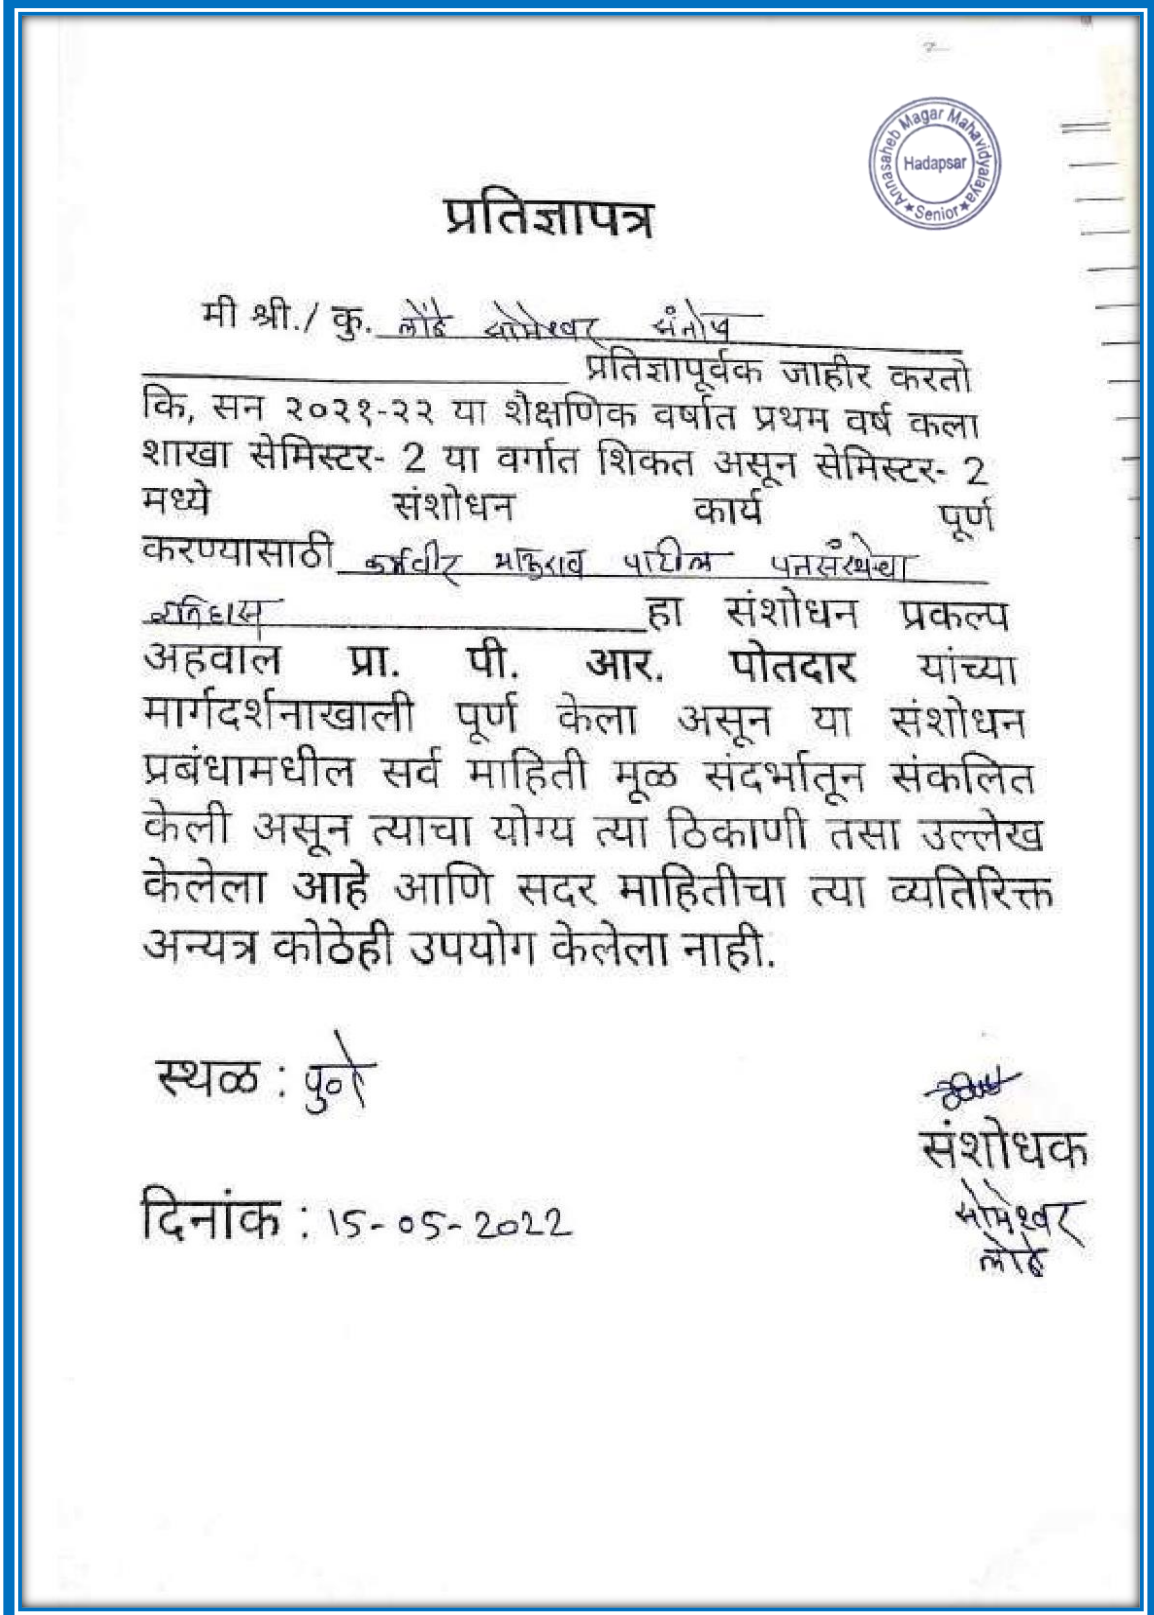 Annasaheb Magar Mahavidyalaya
Hadapsar
★ Senior ★
प्रतिज्ञापत्र
मी श्री./ कु. लोंढे सोमेश्वर संतोष
प्रतिज्ञापूर्वक जाहीर करतो
कि, सन २०२१-२२ या शैक्षणिक वर्षात प्रथम वर्ष कला
शाखा सेमिस्टर- 2 या वर्गात शिकत असून सेमिस्टर- 2
मध्ये संशोधन कार्य पूर्ण
करण्यासाठी कर्मवीर भाऊराव पाटील पतसंस्थेचा
इतिहास हा संशोधन प्रकल्प
अहवाल प्रा. पी. आर. पोतदार यांच्या
मार्गदर्शनाखाली पूर्ण केला असून या संशोधन
प्रबंधामधील सर्व माहिती मूळ संदर्भातून संकलित
केली असून त्याचा योग्य त्या ठिकाणी तसा उल्लेख
केलेला आहे आणि सदर माहितीचा त्या व्यतिरिक्त
अन्यत्र कोठेही उपयोग केलेला नाही.
स्थळ : पुणे
संशोधक
दिनांक : 15-05-2022
सोमेश्वर
लोंढे